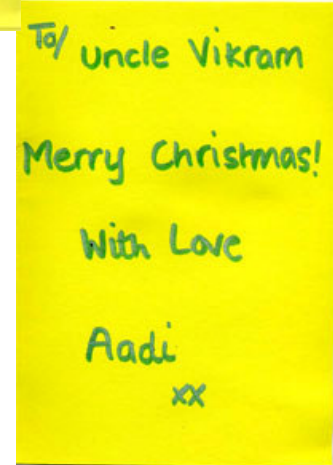 To/ Uncle Vikram
Merry Christmas!
With Love
Aadi
xx